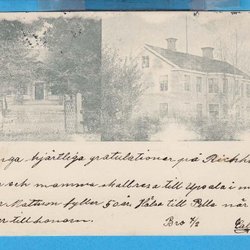 nga hjärtliga gratulationer på Rickh
och mamma skall resa till Upsala i m
fyller 50 år. Hälsa till Pelle när
er till honom. Bro 7/2